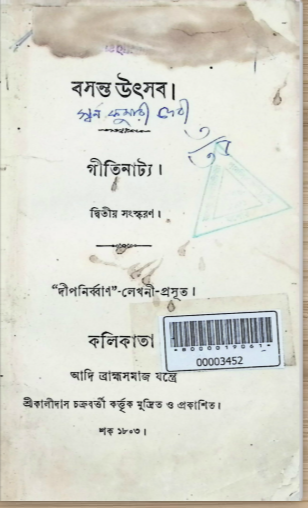 বসন্ত উৎসব।
স্বর্ন কুমারী দেবী
গীতিনাট্য।
দ্বিতীয় সংস্করণ।
“দীপনির্ব্বাণ”-লেখনী-প্রসূত।
কলিকাতা
00003452
আদি ব্রাহ্মসমাজ যন্ত্রে
শ্রীকালীদাস চক্রবর্ত্তী কর্ত্তৃক মুদ্রিত ও প্রকাশিত।
শক ১৮০৩।